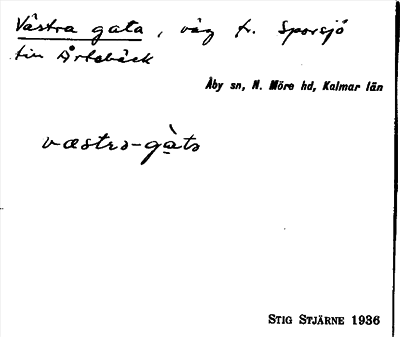 Västra gata, väg fr. Sporsjö
till Årtebäck
Åby sn, N. Möre hd, Kalmar län
væstrɔ-gàtɔ
STIG STJÄRNE 1936